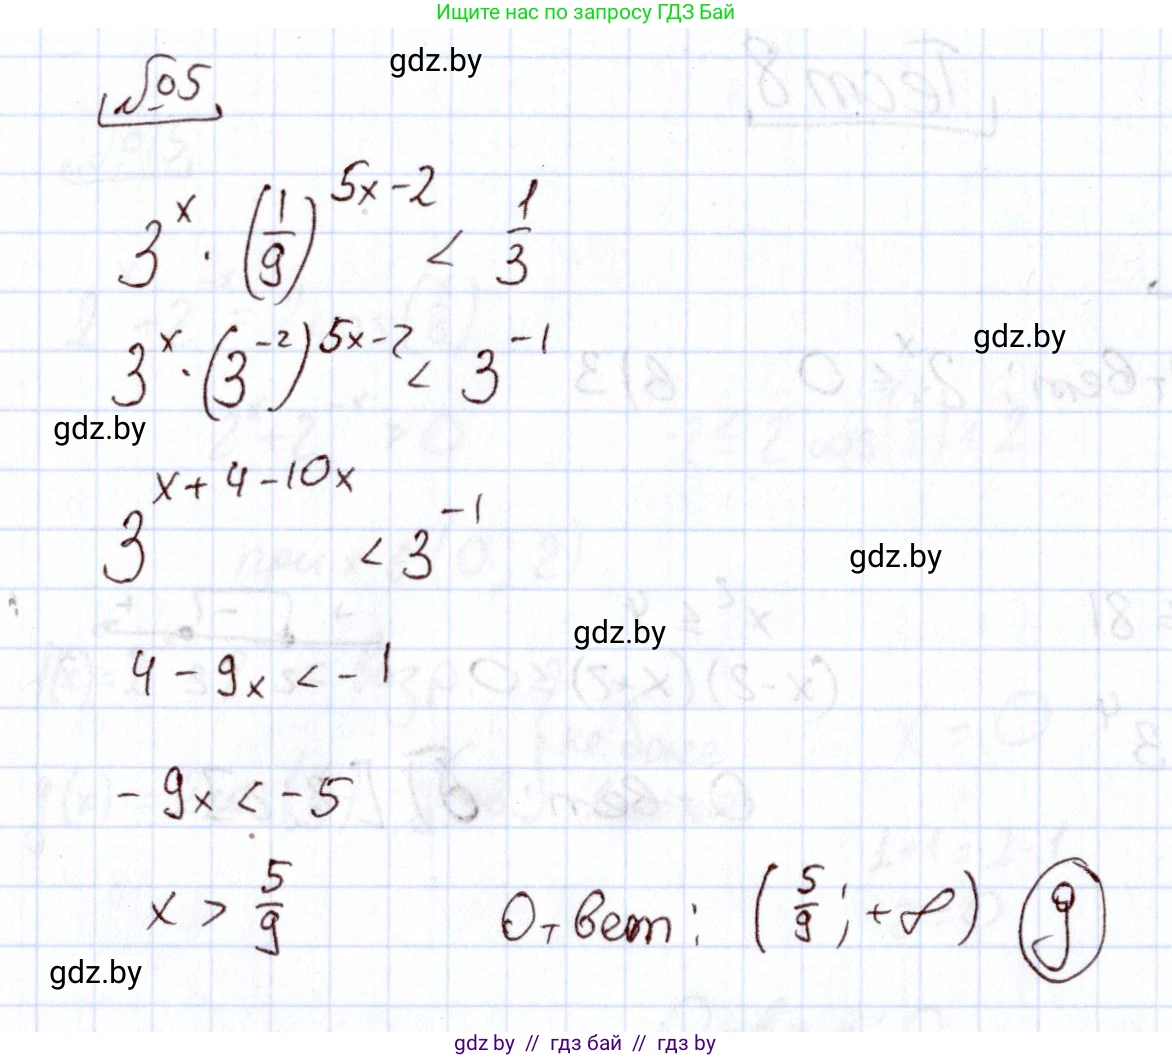 Ищите нас по запросу ГДЗ Бай
№5
gdz.by
3^x · (1/9)^(5x-2) < 1/3
3^x · (3^(-2))^(5x-2) < 3^(-1)
gdz.by
gdz.by
3^(x+4-10x) < 3^(-1)
gdz.by
gdz.by
4 - 9x < -1
-9x < -5
x > 5/9
Ответ: (5/9; +∞) g
gdz.by
gdz.by // гдз бай // гдз by